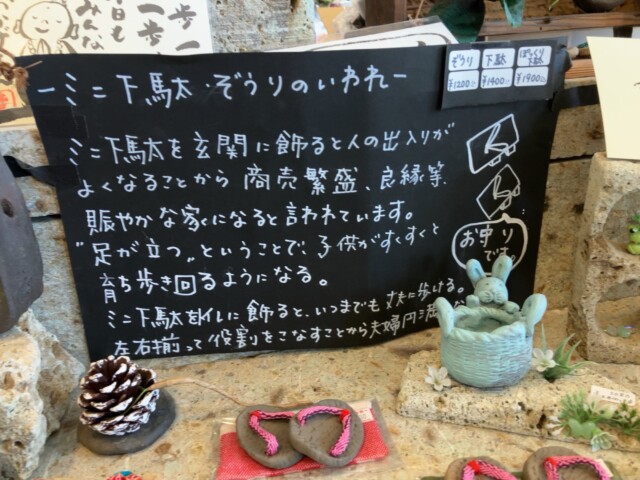 歩一歩
一歩
日も
みんな
ぞうり
¥1200
下駄
¥1400
ぽっくり下駄
¥1900
ーミニ下駄・ぞうりのいわれー
ミニ下駄を玄関に飾ると人の出入りが
よくなることから 商売繁盛、良縁等、
賑やかな家になると言われています。
"足が立つ"ということで、子供がすくすくと
育ち歩き回るようになる。
ミニ下駄をトイレに飾ると、いつまでも丈夫に歩ける。
左右揃って役割をこなすことから夫婦円満
お守り
です。